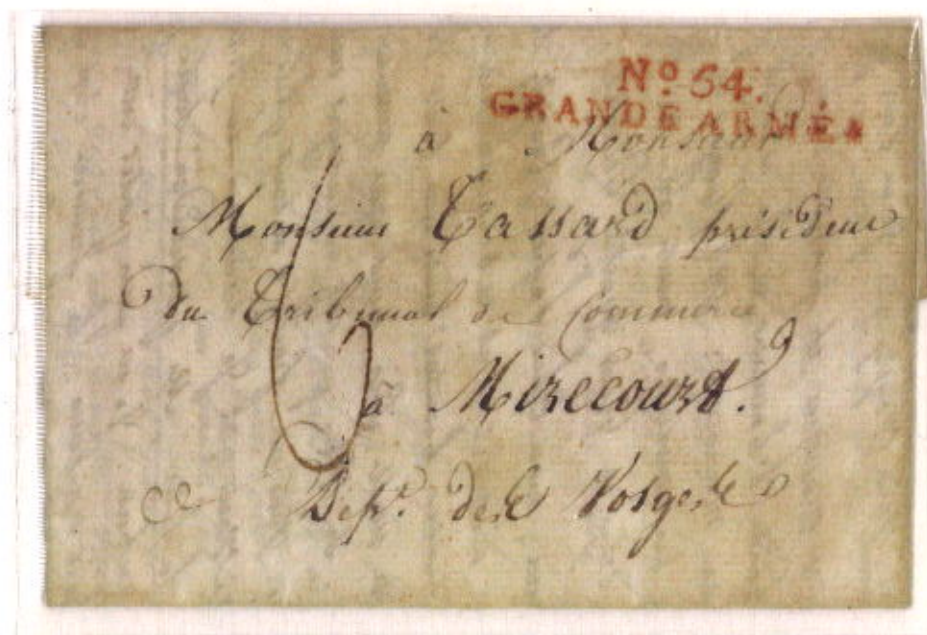 No 54.
GRANDE ARMÉE
à Monsieur
Monsieur Tassard président
du Tribunal de Commerce
à Mirecourt.
Dept. des Vosges
6